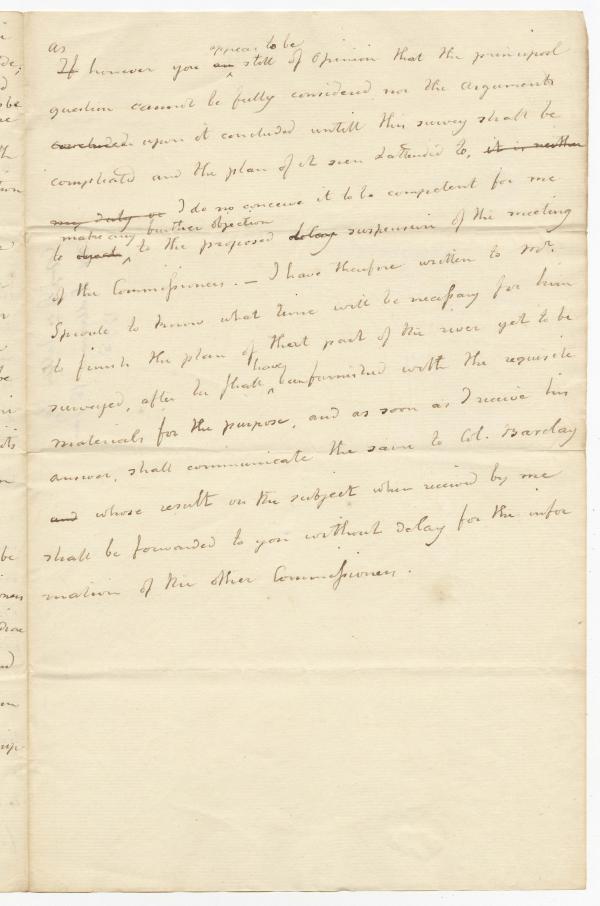 As
appear to be
If however you are still of opinion that the principal
question cannot be fully considered nor the arguments
concluded upon it concluded untill this survey shall be
complicated and the plan of it seen & attended to, it is neither
my duty or I do no conceive it to be competent for me
make any further objection
to object to the proposed delay suspension of the meeting
of the Commissioners. — I have therefore written to Mr.
Sproule to know what time will be necessary for him
to finish the plan of that part of the river yet to be
have
surveyed, after he shall been furnished with the requisite
materials for the purpose, and as soon as I receive his
answer, shall communicate the same to Col. Barclay
and whose result on the subject when received by me
shall be forwarded to you without delay for the infor
mation of the other Commissioners.